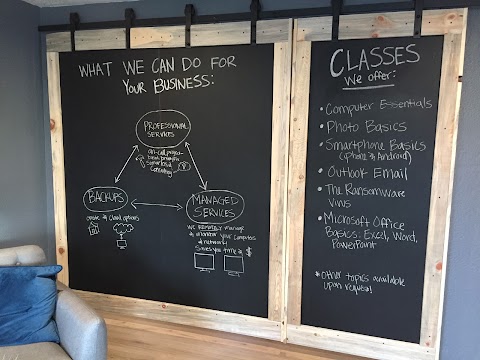 WHAT WE CAN DO FOR
YOUR BUSINESS:
PROFESSIONAL
SERVICES
on-call, project-
based, proactive
consulting
BACKUPS
onsite & cloud options
MANAGED
SERVICES
WE REMOTELY manage
& monitor your computers
& network.
Saves you time & $
CLASSES
We offer:
• Computer Essentials
• Photo Basics
• Smartphone Basics
(iPhone & Android)
• Outlook Email
• The Ransomware
Virus
• Microsoft Office
Basics: Excel, Word,
PowerPoint
* other topics available
upon request!